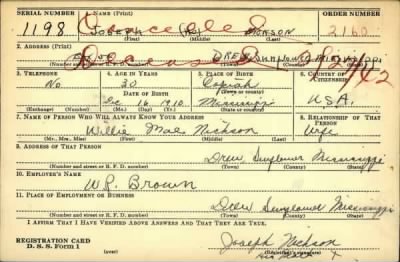 SERIAL NUMBER 1. NAME (Print) ORDER NUMBER
1198 Cancelled JOSEPH (No) NICKSON 2162
(First) (Middle) (Last)
2. ADDRESS (Print)
Deceased DREW SUNFLOWER MISSISSIPPI 2/42
(Number and street or R. F. D. number) (Town) (County) (State)
3. TELEPHONE 4. AGE IN YEARS 5. PLACE OF BIRTH 6. COUNTRY OF CITIZENSHIP
No 30 Copiah
DATE OF BIRTH (Town or county)
Dec 16 1910 Mississippi U.S.A.
(Exchange) (Number) (Mo.) (Day) (Yr.) (State or country)
7. NAME OF PERSON WHO WILL ALWAYS KNOW YOUR ADDRESS 8. RELATIONSHIP OF THAT PERSON
Willie Mae Nickson Wife
(Mr., Mrs., Miss) (First) (Middle) (Last)
9. ADDRESS OF THAT PERSON
Drew Sunflower Mississippi
(Number and street or R. F. D. number) (Town) (County) (State)
10. EMPLOYER'S NAME
W.R. Brown
11. PLACE OF EMPLOYMENT OR BUSINESS
Drew Sunflower Mississippi
(Number and street or R. F. D. number) (Town) (County) (State)
I AFFIRM THAT I HAVE VERIFIED ABOVE ANSWERS AND THAT THEY ARE TRUE.
REGISTRATION CARD Joseph Nickson
D. S. S. Form 1 His Mark X